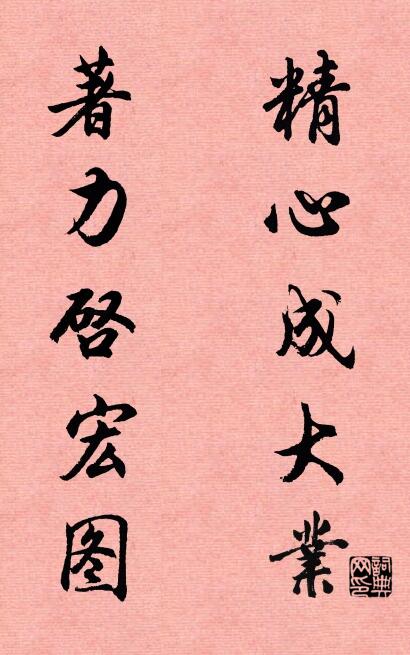 精心成大業
著力啓宏图
詞典网印